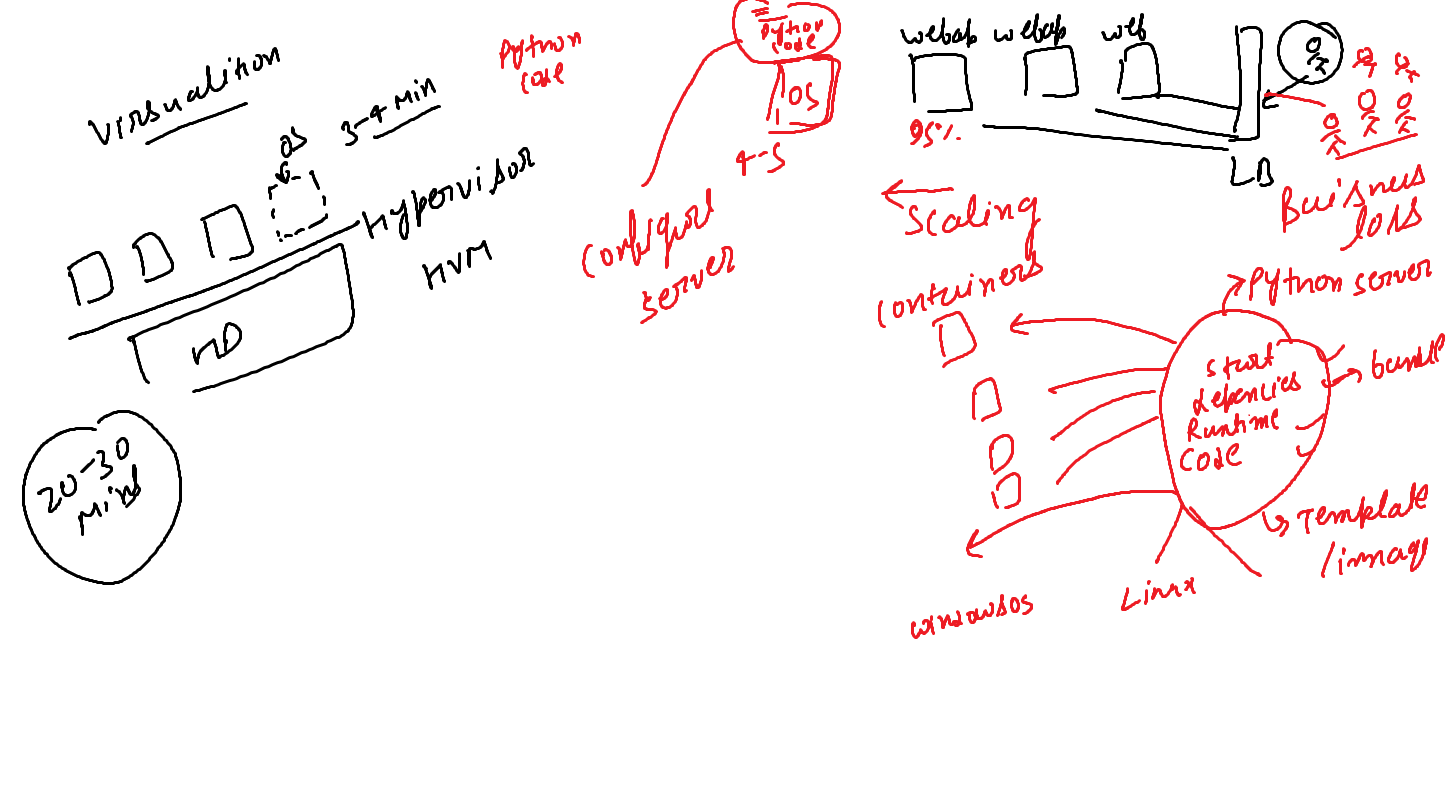 virsualition
OS
3-4 min
Hypervisor
HVM
HD
20-30
Mins
Python
code
Python
code
OS
4-5
Configure
server
webap webap web
95%
LB
Scaling
Buisness
loss
Containers
Python server
start
depencies
Runtime
Code
bundle
Template
/image
windowsos
Linux